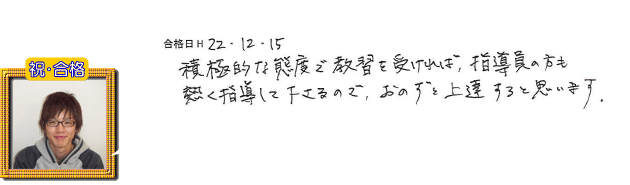 祝・合格
合格日 H 22・12・15
積極的な態度で教習を受ければ、指導員の方も
熱く指導して下さるので、おのずと上達すると思います.